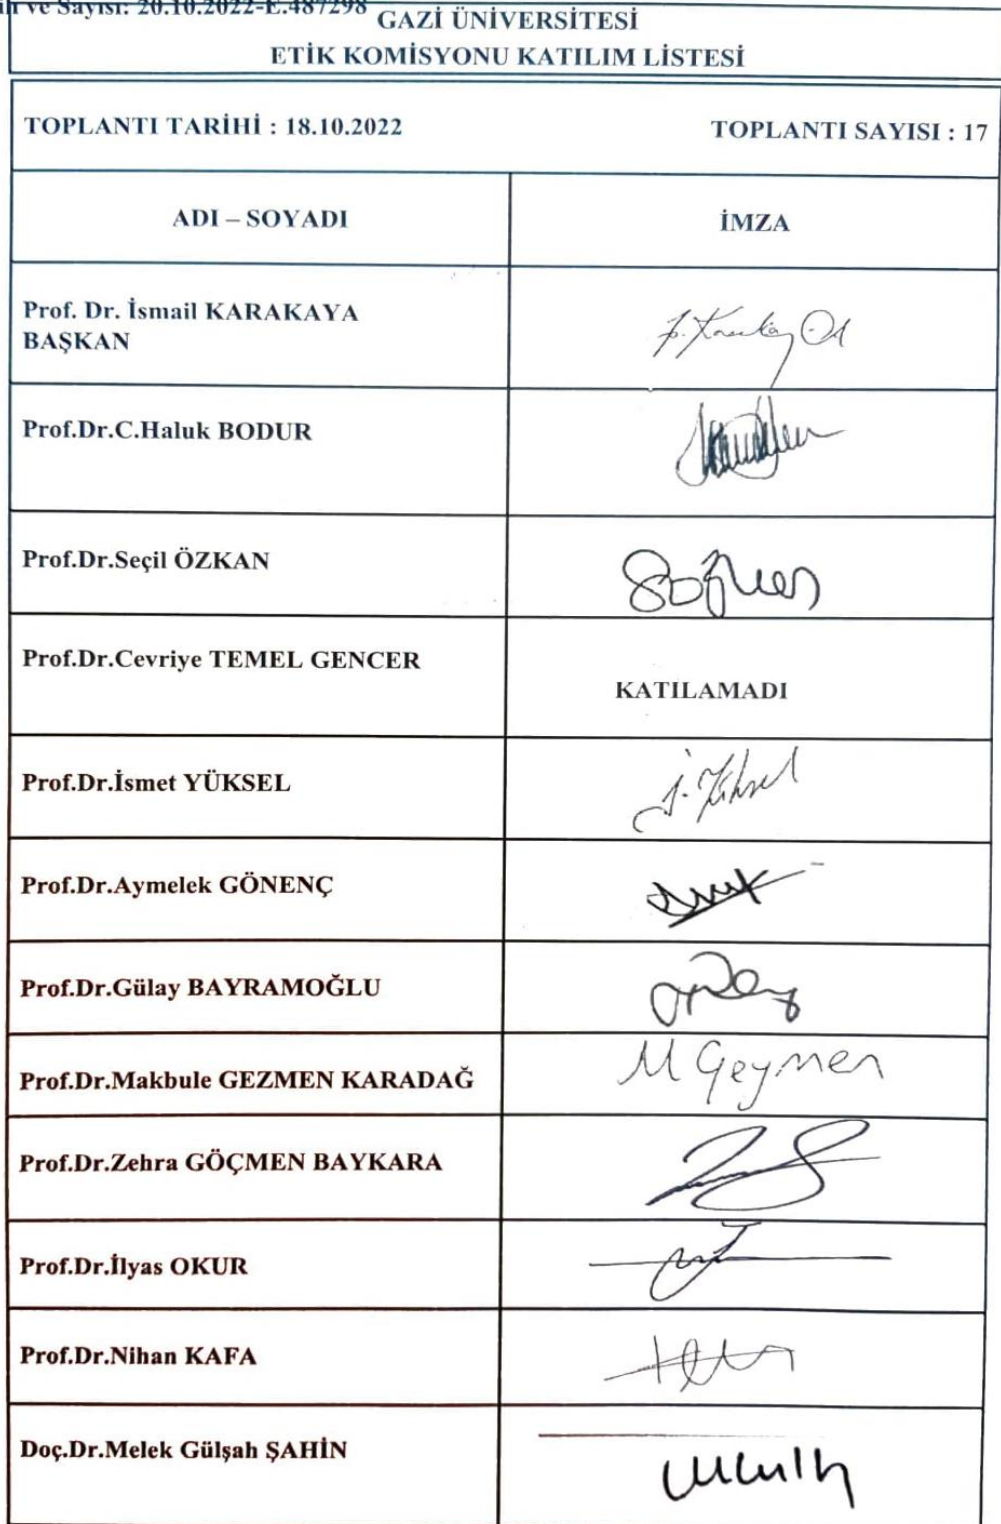 ve Sayısı: 20.10.2022-E.487298
GAZİ ÜNİVERSİTESİ
ETİK KOMİSYONU KATILIM LİSTESİ
TOPLANTI TARİHİ : 18.10.2022 TOPLANTI SAYISI : 17
ADI – SOYADI İMZA
Prof. Dr. İsmail KARAKAYA
BAŞKAN
Prof.Dr.C.Haluk BODUR
Prof.Dr.Seçil ÖZKAN
Prof.Dr.Cevriye TEMEL GENCER
KATILAMADI
Prof.Dr.İsmet YÜKSEL
Prof.Dr.Aymelek GÖNENÇ
Prof.Dr.Gülay BAYRAMOĞLU
M Geymen
Prof.Dr.Makbule GEZMEN KARADAĞ
Prof.Dr.Zehra GÖÇMEN BAYKARA
Prof.Dr.İlyas OKUR
Prof.Dr.Nihan KAFA
Doç.Dr.Melek Gülşah ŞAHİN